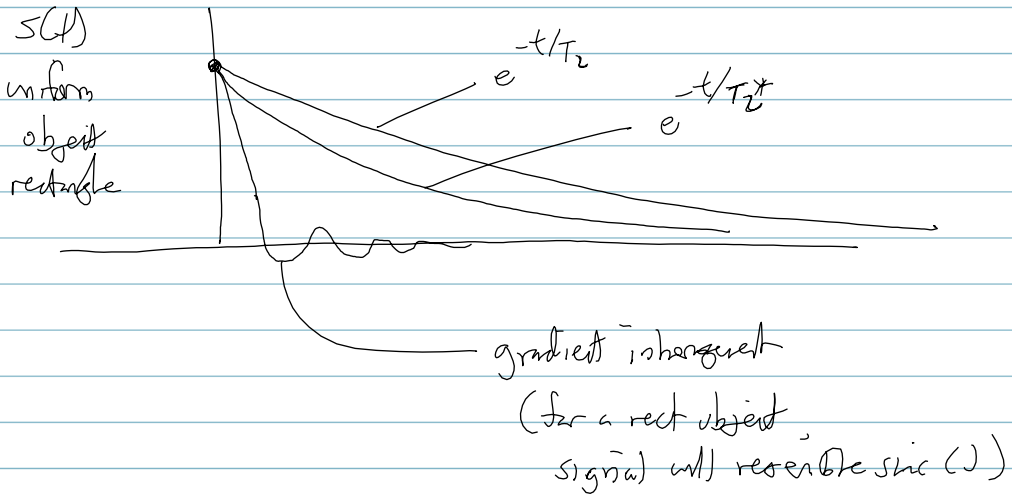 s(t)
uniform
object
rectangle
e^{-t/T_2}
e^{-t/T_2^*}
gradient
(for a rect object,
signal will resemble sinc ( ) )